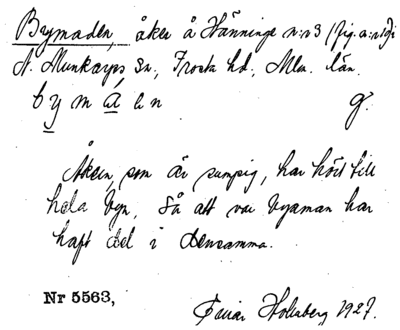 Bymaden, åker å Hänninge n:r 3 (fig. a:
N. Munkarps sn, Frosta hd., Mlm. län.
bymáln g.
Åkern, som är sumpig, har hört till
hela byn, så att var byaman har
haft del i densamma.
Nr 5563, Einar Holmberg 1927.